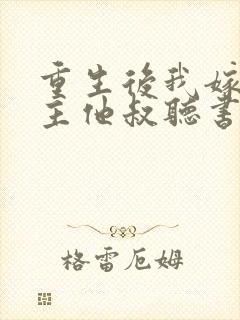 重生後我嫁
主他叔聽書
格雷厄姆